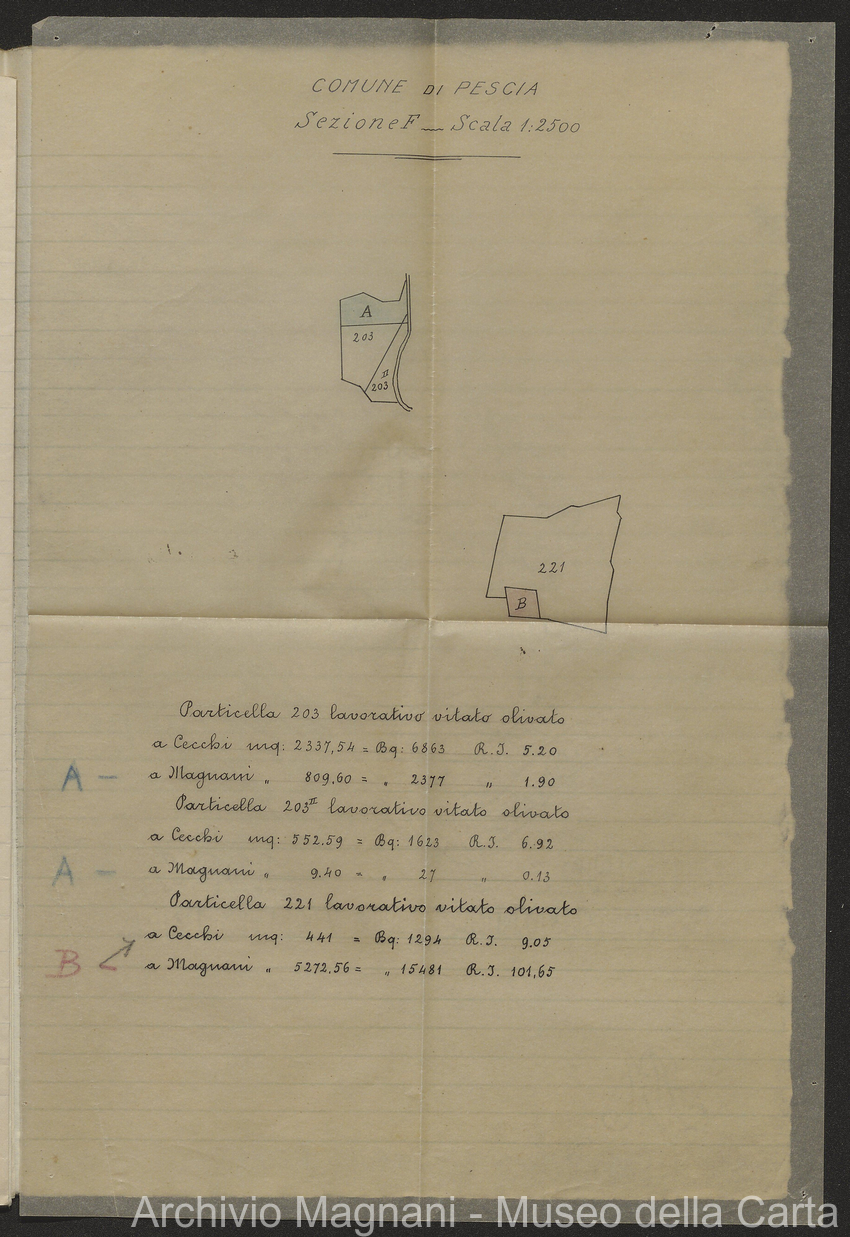 COMUNE DI PESCIA
Sezione F — Scala 1:2500
A
203
II
203
221
B
Particella 203 lavorativo vitato olivato
a Cecchi mq: 2337,54 = Bq: 6863 R.I. 5.20
A – a Magnani " 809.60 = " 2377 " 1.90
Particella 203II lavorativo vitato olivato
a Cecchi mq: 552.59 = Bq: 1623 R.I. 6.92
A – a Magnani " 9.40 = " 27 " 0.13
Particella 221 lavorativo vitato olivato
a Cecchi mq: 441 = Bq: 1294 R.I. 9.05
B – a Magnani " 5272,56 = " 15481 R.I. 101,65
Archivio Magnani - Museo della Carta